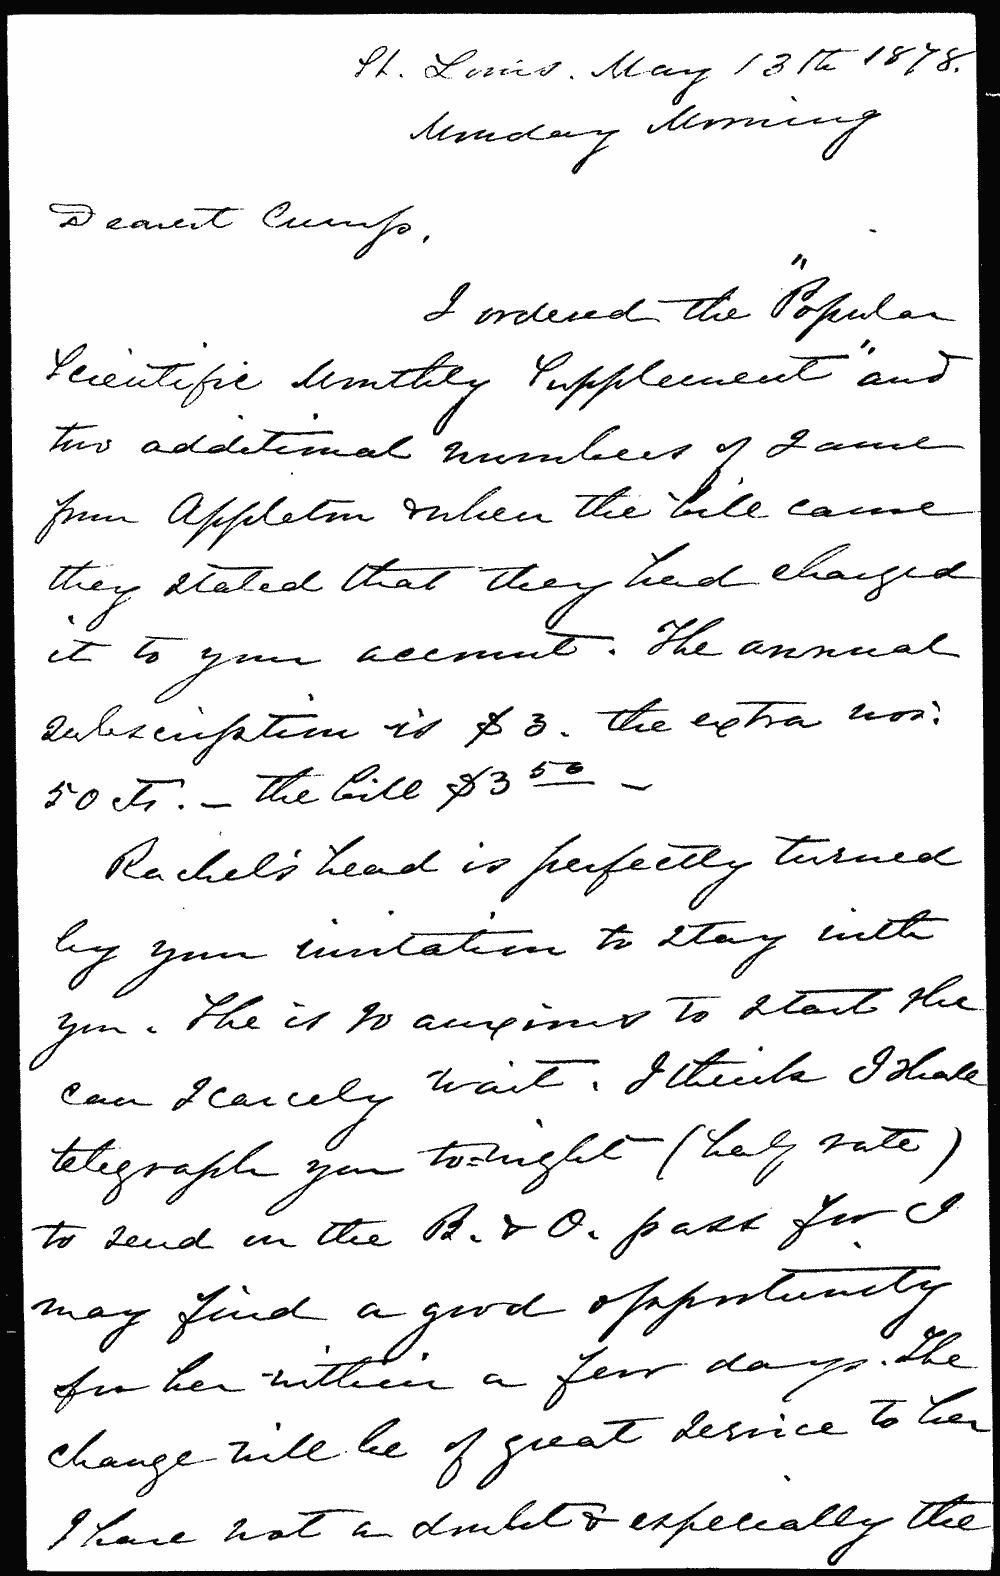 St. Louis. May 13th 1878.
Monday Morning
Dearest Cump,
I ordered the "Popular
Scientific Monthly Supplement" and
two additional numbers of same
from Appleton & when the bill came
they stated that they had charged
it to your account. The annual
subscription is $3. the extra nos.
50 cts. — the bill $3 50 —
Rachel's head is perfectly turned
by your invitation to stay with
you. She is so anxious to start she
can scarcely wait. I think I shall
telegraph you to=night (half rate)
to send on the B. & O. pass for I
may find a good opportunity
for her within a few days. The
change will be of great service to her
I have not a doubt & especially the